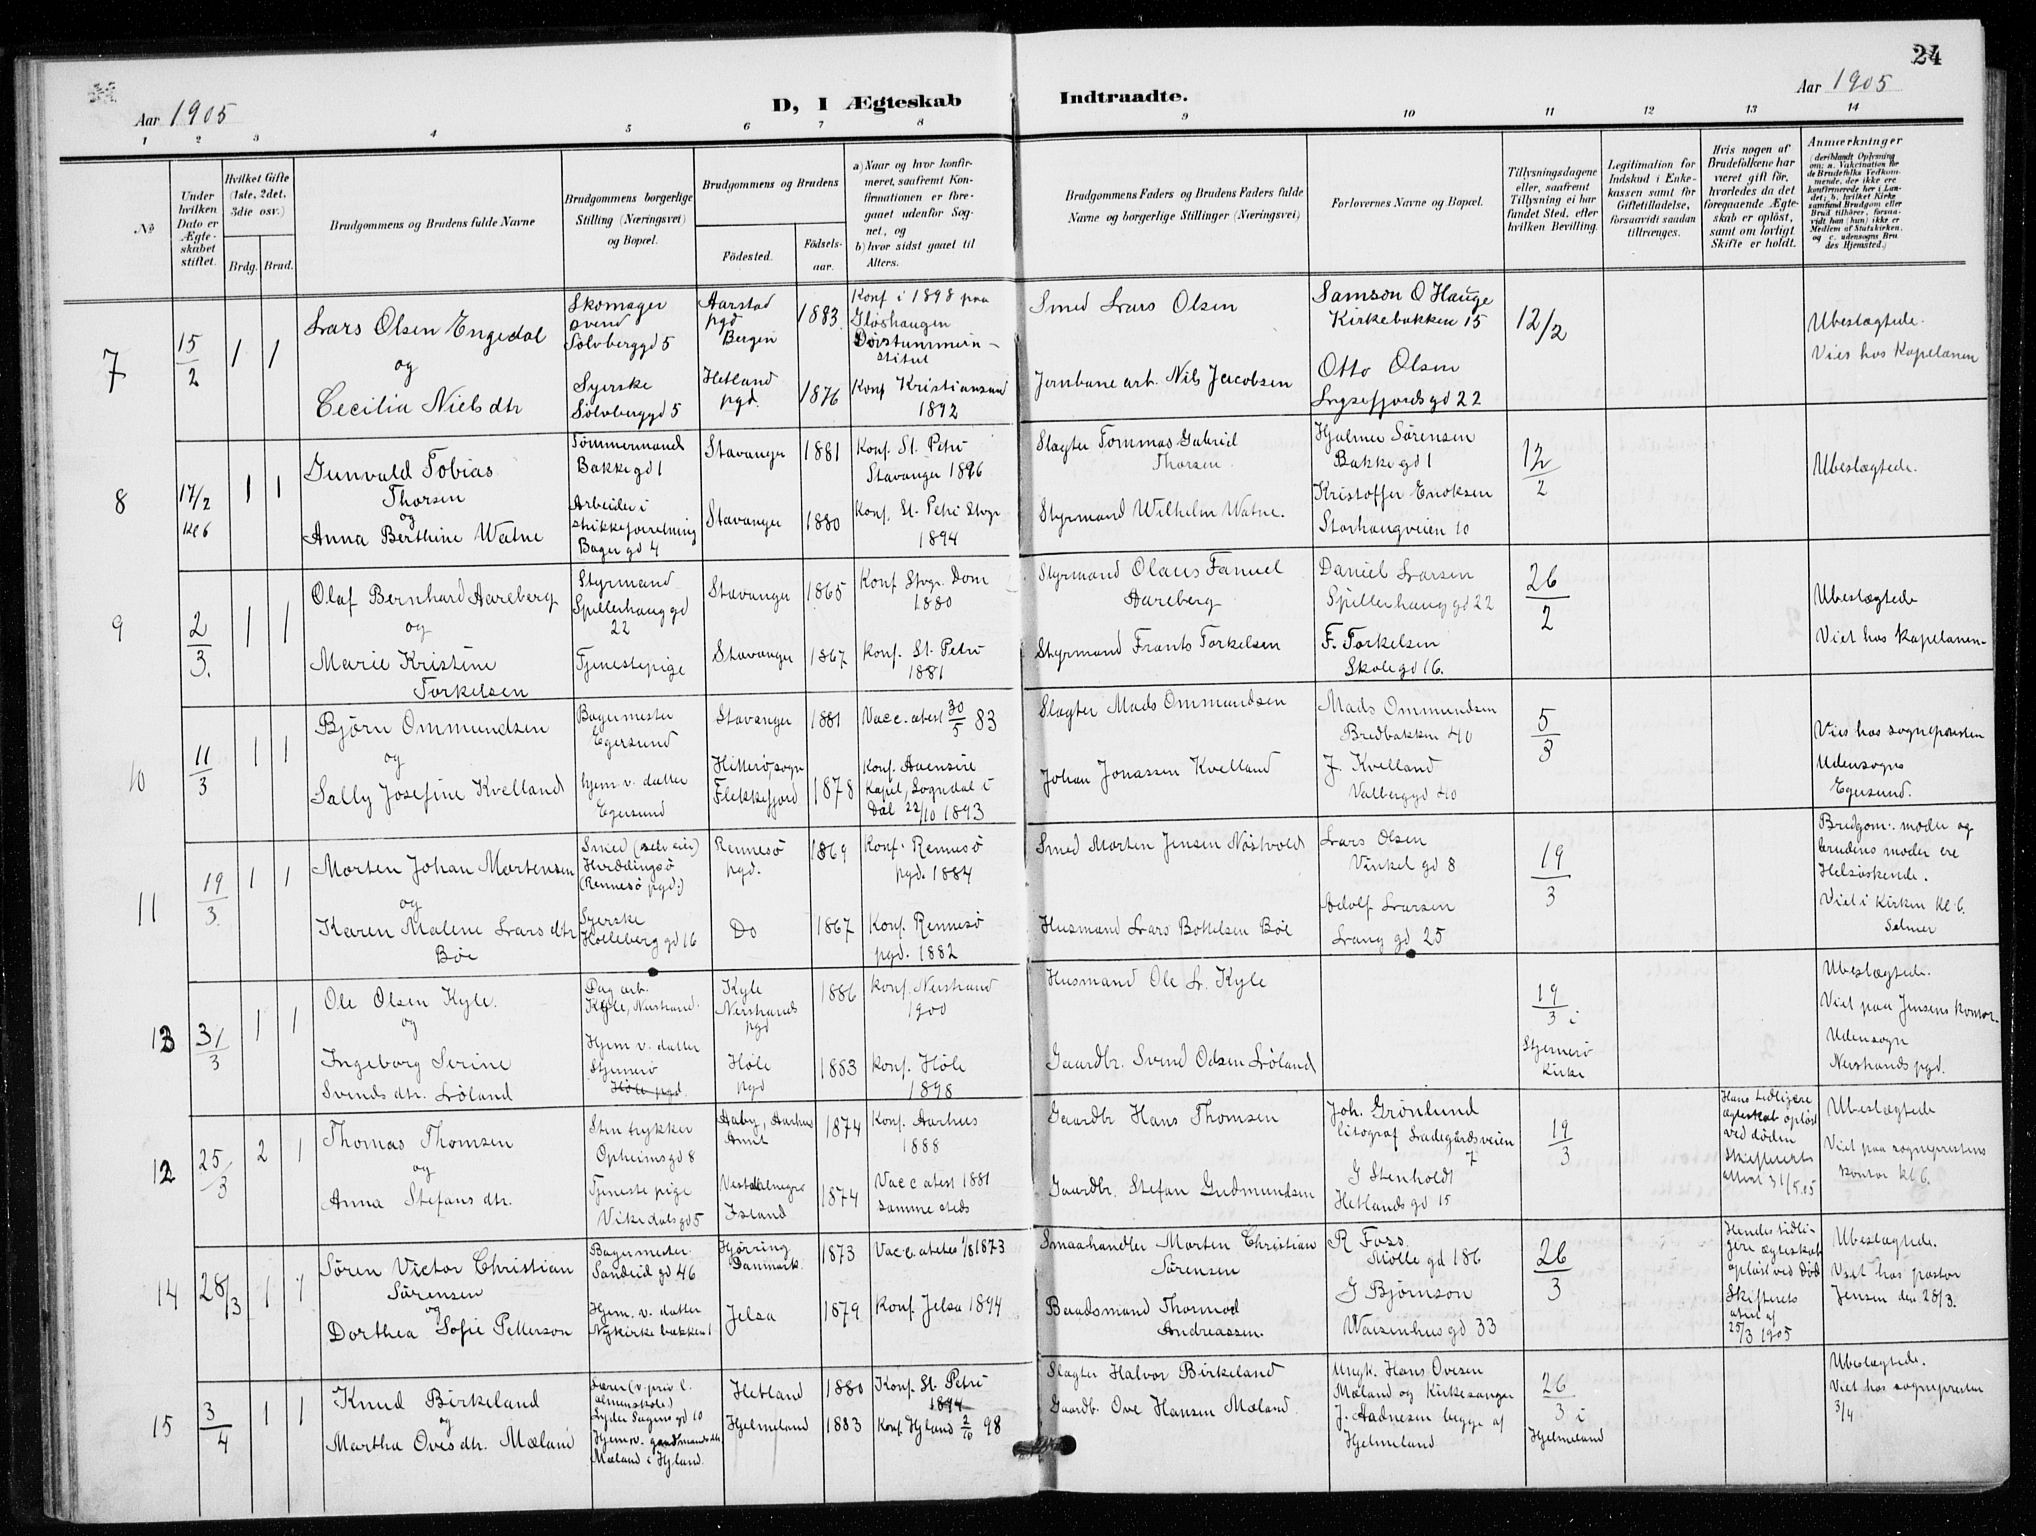 24
Aar 1905
D, I Ægteskab Indtraadte.
Aar 1905
1 2 3 4 5 6 7 8 9 10 11 12 13 14
No
Under hvilken Dato er Ægteskabet stiftet.
Hvilket Gifte (1ste, 2det, 3die osv.)
Brdg. Brud.
Brudgommens og Brudens fulde Navne
Brudgommens borgerlige Stilling (Næringsvei) og Bopæl.
Brudgommens og Brudens
Fødested.
Fødselsaar.
a) Naar og hvor konfirmeret, saafremt Konfirmationen er foregaaet udenfor Sognet, og
b) hvor sidst gaaet til Alters.
Brudgommens Faders og Brudens Faders fulde Navne og borgerlige Stillinger (Næringsvei)
Forlovernes Navne og Bopæl.
Tillysningsdagene eller, saafremt Tillysning ei har fundet Sted, efter hvilken Bevilling.
Legitimation for Indskud i Enkekassen samt for Giftetilladelse, forsaavidt saadan tiltrænges.
Hvis nogen af Brudefolkene har været gift før, hvorledes da det foregaaende Ægteskab er opløst, samt om lovligt Skifte er holdt.
Anmærkninger
(deriblandt Oplysning om: a. Vakcination for de Brudefolks Vedkommende, der ikke ere konfirmerede her i Landet; b. hvilket Kirkesamfund Brudgom eller Brud tilhører, forsaavidt han (hun) ikke er Medlem af Statskirken, og c. udensogns Brudes Hjemsted.)
7
15/2
1 1
Lars Olsen Engedal
og
Cecilia Nielsdtr
Skomager
svend
Sølvberggd 5
Syerske
Sølvberggd 5
Aarstad
pgd
Bergen
Hetland
pgd.
1883
1876
Konf i 1898 paa
Gløshaugen
Døvstummein-
stitut
Konf Kristiansand
1892
Smed Lars Olsen
Jernbane arb. Nils Jacobsen
Samson O Hauge
Kirkebakken 15
Otto Olsen
Lysefjordsgd 22
12/2
Ubeslægtede.
Viet hos Kapelanen
8
17/2
kl 6
1 1
Gunvald Tobias
Thorsen
og
Anna Berthine Watne
Tømmermand
Bakkegd 1
Arbeider i
strikkeforretning
Bagergd 4
Stavanger
Stavanger
1881
1880
Konf. St. Petri
Stavanger 1896
Konf. St. Petri Stvgr
1894
Slagter Tommas Gabriel
Thorsen.
Styrmand Wilhelm Watne.
Hjalmer Sørensen
Bakke gd 1
Kristoffer Enoksen
Storhaugveien 10
12/2
Ubeslægtede.
9
2/3.
1 1
Olaf Bernhard Aareberg
og
Marie Kristine
Torkelsen
Styrmand
Spillerhauggd
22
Tjenestepige
Stavanger
Stavanger
1865
1867
Konf Stvgr. Dom
1880
Konf. St. Petri
1881
Styrmand Olaus Fanuel
Aareberg
Styrmand Frants Torkelsen
Daniel Larsen
Spillerhauggd 22
F. Torkelsen
Skolegd 16.
26/2
Ubeslægtede
Viet hos Kapelanen
10
11/3
1 1
Bjørn Ommundsen
og
Sally Josefine Kvelland
Bagermester
Egersund
hjem. v. datter
Egersund
Stavanger
Hitterø sogn
Flekkefjord
1881
1878
Vacc. atest 30/5 83
Konf. Aaensire
Kapel, Sogndal i
Dal 22/10 1893
Slagter Mads Ommundsen
Johan Jonassen Kvelland
Mads Ommundsen
Bredbakken 40
J. Kvelland
Valberggd 40
5/3
Viet hos sognepresten
Udensogns
Egersund.
11
19/3.
1 1
Morten Johan Mortensen
og
Karen Malene Larsdtr
Bøe
Smed (selveier)
Hviddingsø
(Rennesø pgd.)
Syerske
Holleberggd 16
Rennesø
pgd.
Do
1869
1867
Konf. Rennesø
pgd. 1884
Konf. Rennesø
pgd. 1882
Smed Morten Jensen Nøstvold
Husmand Lars Bottelsen Bøe
Lars Olsen
Vinkel gd 8
Adolf Larsen
Langgd 25
19/3
Brudgom. moder og
brudens moder ere
Helsøskende.
Viet i Kirken kl 6.
Selmer
13
31/3
1 1
Ole Olsen Kyle.
og
Ingeborg Serine
Svendsdtr. Løland
Dag arb.
Kyle, Nerstrand.
Hjem v. datter
Stjernerø
Høle pgd.
Kyle
Nerstrands
pgd
Høle
pgd
1886
1883
Konf. Nerstrand
1900
Konf. Høle
1898
Husmand Ole L. Kyle
Gaardbr. Svend Odsen Løland
19/3 i
Stjernerø
Kirke
Ubeslægtede.
Viet paa Jensens kontor.
Udensogn
Nerstrands pgd.
12
25/3
2 1
Thomas Thomsen
og
Anna Stefansdtr.
Stentrykker
Opheimsgd 8
Tjenestepige
Vikedalsgd 5
Aaby, Aarhus
Amt
Island
1874
1874
Konf. Aarhus
1888
Vacc atest 1881
samme steds
Gaardbr Hans Thomsen
Gaardbr. Stefan Gudmundsen
Joh. Grønlund
litograf Ladegårdsveien
7
J Stenholdt
Hetlandsgd 15
19/3
Hans tidligere
ægteskab opløst
ved døden
Skifterets
attest 31/5.05
Ubeslægtede
Viet paa sogneprestens
kontor kl 6.
14
28/3
1 1
Søren Victor Christian
Sørensen
og
Dorthea Sofie Petterson
Bagermester
Sandeidgd 46
Hjem. v. datter
Nykirkebakken 1
Hjørring
Danmark.
Jelsa
1873
1879
Vacc. atest 1/8 1873
Konf. Jelsa 1894
Smaahandler Morten Christian
Sørensen
Baadsmand Thormod
Andreassen.
R Foss.
Møllegd 186
J Bjørnson
Waisenhusgd 33
26/3
Hendes tidli-
gere ægteskab
opløst ved død
Skifterets
attest af
25/3 1905
Ubeslægtede.
Viet hos pastor
Jensen den 28/3.
15
3/4
1 1
Knud Birkeland
og
Martha Ovesdtr. Mæland
Lærer (v. priv.
almueskole)
Lyder Sagens gd 10
Hjem. v. gaardmandsdtr.
Mæland i Hjland.
Hetland
Hjelmeland
1880
1883
Konf. St. Petri
1894
Konf. Hjland 2/10 98
Slagter Halvor Birkeland
Gaardb. Ove Hansen Mæland.
Ungk. Hans Ovesen
Mæland og Kirkesanger
J. Aadnesen begge af
Hjelmeland
26/3 i
Hjelmeland
Ubeslægtede.
Viet hos sognepresten
3/4.